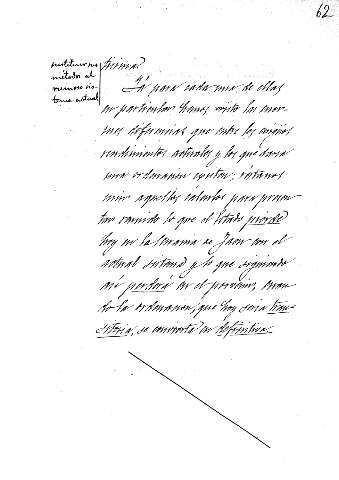 62
sustituir un
método al
ruinoso sis-
tema actual
térmia?
Ya para cada una de ellas
en particular hemos visto las enor-
mes diferencias que entre los exiguos
rendimientos actuales y los que daría
una ordenacion existen; réstanos
unir aquellos cálculos para presen-
tar reunido lo que el Estado pierde
hoy en la Serranía de Jaen con el
actual sistema y lo que siguiendo
así perderá en el porvenir, cuan-
do la ordenacion, que hoy seria tran-
sitoria, se convierta en definitiva.